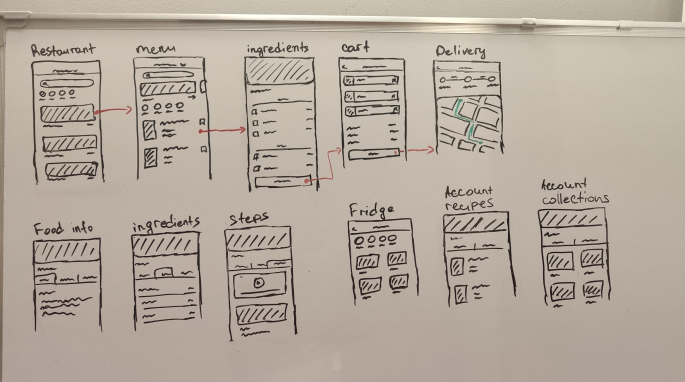 Restaurant
menu
ingredients
cart
Delivery
Food info
ingredients
Steps
Fridge
Account
recipes
Account
collections